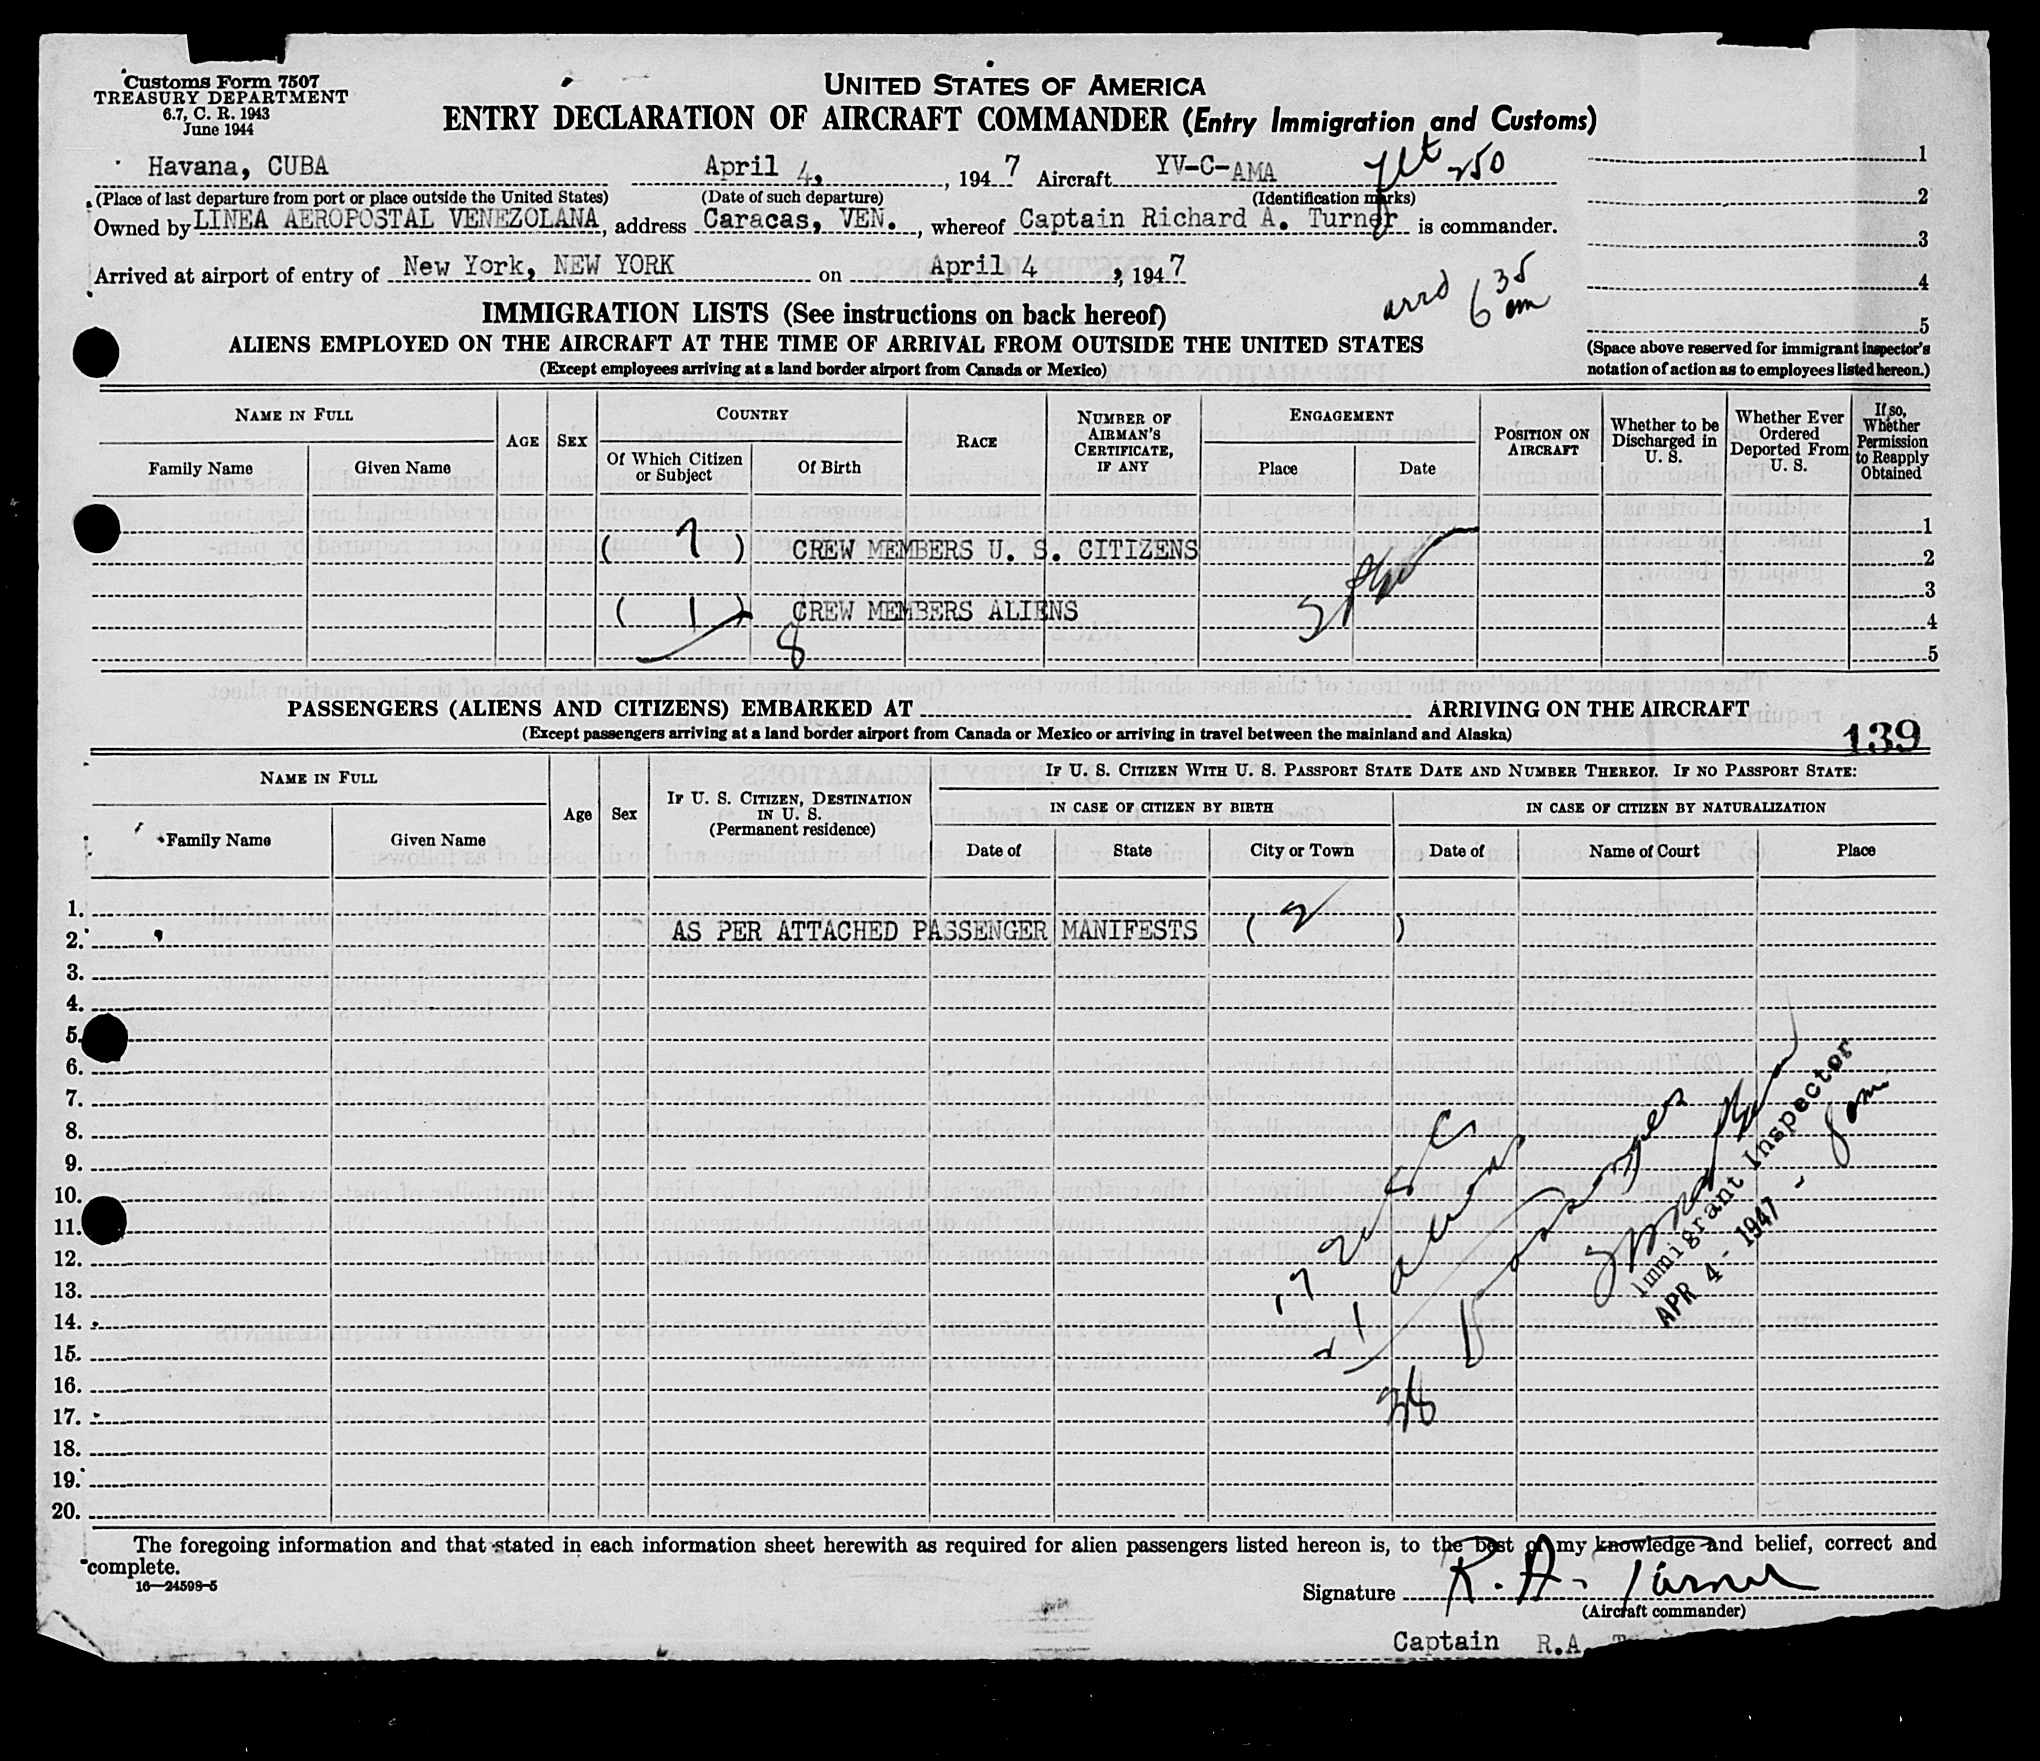 Customs Form 7507
TREASURY DEPARTMENT
6.7, C. R. 1943
June 1944
UNITED STATES OF AMERICA
ENTRY DECLARATION OF AIRCRAFT COMMANDER (Entry Immigration and Customs)
Havana, CUBA April 4, 1947 Aircraft YV-C-AMA flt 250
(Place of last departure from port or place outside the United States) (Date of such departure) (Identification marks)
Owned by LINEA AEROPOSTAL VENEZOLANA, address Caracas, VEN., whereof Captain Richard A. Turner is commander.
Arrived at airport of entry of New York, NEW YORK on April 4, 1947
arrd 6 35 am
1
2
3
4
5
(Space above reserved for immigrant inspector's notation of action as to employees listed hereon.)
IMMIGRATION LISTS (See instructions on back hereof)
ALIENS EMPLOYED ON THE AIRCRAFT AT THE TIME OF ARRIVAL FROM OUTSIDE THE UNITED STATES
(Except employees arriving at a land border airport from Canada or Mexico)
NAME IN FULL
Family Name Given Name
AGE SEX
COUNTRY
Of Which Citizen or Subject Of Birth
RACE
NUMBER OF AIRMAN'S CERTIFICATE, IF ANY
ENGAGEMENT
Place Date
POSITION ON AIRCRAFT
Whether to be Discharged in U. S.
Whether Ever Ordered Deported From U. S.
If so, Whether Permission to Reapply Obtained
1
( 7 ) CREW MEMBERS U. S. CITIZENS 2
3
( 1 ) CREW MEMBERS ALIENS 4
8 5
PASSENGERS (ALIENS AND CITIZENS) EMBARKED AT ARRIVING ON THE AIRCRAFT
(Except passengers arriving at a land border airport from Canada or Mexico or arriving in travel between the mainland and Alaska)
139
NAME IN FULL
Family Name Given Name
Age Sex
IF U. S. CITIZEN, DESTINATION IN U. S.
(Permanent residence)
IF U. S. CITIZEN WITH U. S. PASSPORT STATE DATE AND NUMBER THEREOF. IF NO PASSPORT STATE:
IN CASE OF CITIZEN BY BIRTH IN CASE OF CITIZEN BY NATURALIZATION
Date of State City or Town Date of Name of Court Place
1.
2. AS PER ATTACHED PASSENGER MANIFESTS ( 2 )
3.
4.
5.
6.
7.
8.
9.
10.
11.
12.
13.
14.
15.
16.
17.
18.
19.
20.
7 USC
21 aliens
28 Passengers
Immigrant Inspector
APR 4 - 1947 - 8 am
The foregoing information and that stated in each information sheet herewith as required for alien passengers listed hereon is, to the best of my knowledge and belief, correct and
complete.
16—24598-5
Signature R. A. Turner
(Aircraft commander)
Captain R.A.